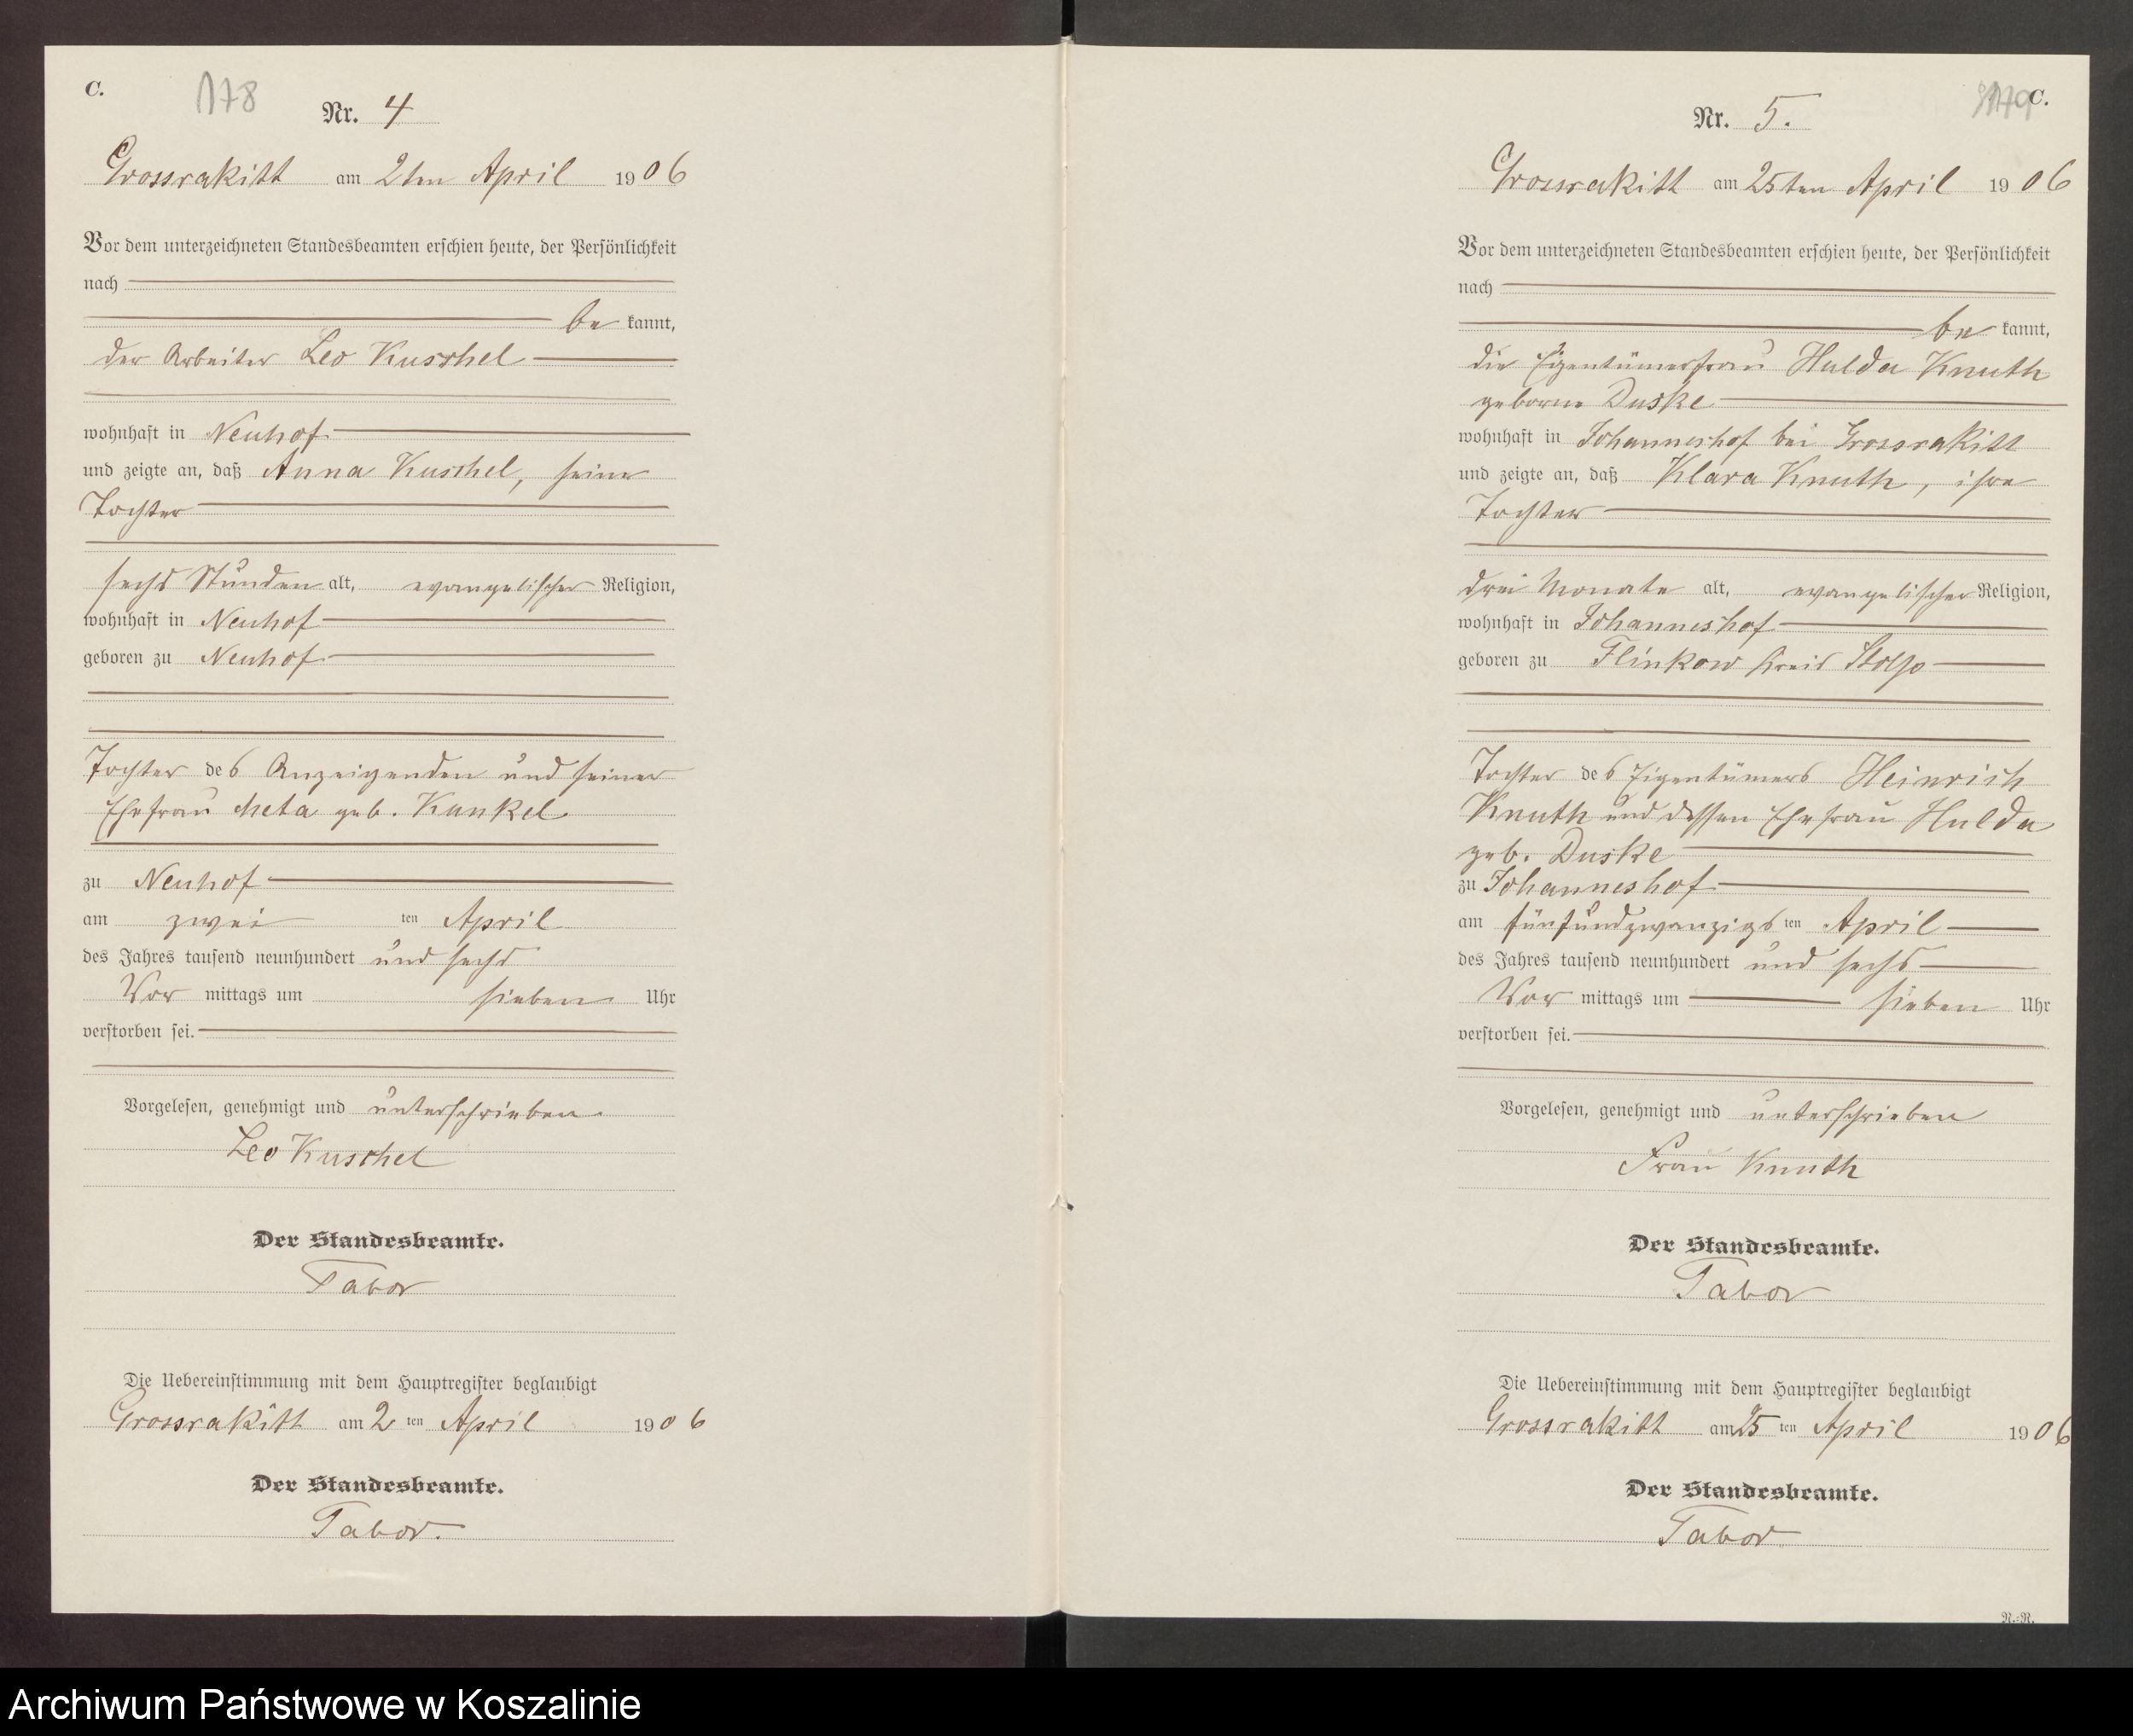 C.
178
Nr. 4
Grossrakitt am 2ten April 1906
Vor dem unterzeichneten Standesbeamten erschien heute, der Persönlichkeit
nach
be kannt,
der Arbeiter Leo Kuschel
wohnhaft in Neuhof
und zeigte an, daß Anna Kuschel, seine
Tochter
sechs Stunden alt, evangelischer Religion,
wohnhaft in Neuhof
geboren zu Neuhof
Tochter des Anzeigenden und seiner
Ehefrau Meta geb. Kunkel
zu Neuhof
am zwei ten April
des Jahres tausend neunhundert und sechs
Vor mittags um sieben Uhr
verstorben sei.
Vorgelesen, genehmigt und unterschrieben.
Leo Kuschel
Der Standesbeamte.
Tabor
Die Uebereinstimmung mit dem Hauptregister beglaubigt
Grossrakitt am 2 ten April 1906
Der Standesbeamte.
Tabor.
C.
179
Nr. 5.
Grossrakitt am 25ten April 1906
Vor dem unterzeichneten Standesbeamten erschien heute, der Persönlichkeit
nach
be kannt,
die Eigentümerfrau Hulda Knuth
geborne Duske
wohnhaft in Johanneshof bei Grossrakitt
und zeigte an, daß Klara Knuth, ihre
Tochter
drei Monate alt, evangelischer Religion,
wohnhaft in Johanneshof
geboren zu Flinkow Kreis Stolp
Tochter des Eigentümers Heinrich
Knuth und dessen Ehefrau Hulda
geb. Duske
zu Johanneshof
am fünfundzwanzigs ten April
des Jahres tausend neunhundert und sechs
Vor mittags um sieben Uhr
verstorben sei.
Vorgelesen, genehmigt und unterschrieben
Frau Knuth
Der Standesbeamte.
Tabor
Die Uebereinstimmung mit dem Hauptregister beglaubigt
Grossrakitt am 25 ten April 1906
Der Standesbeamte.
Tabor
N.-N.
Archiwum Państwowe w Koszalinie